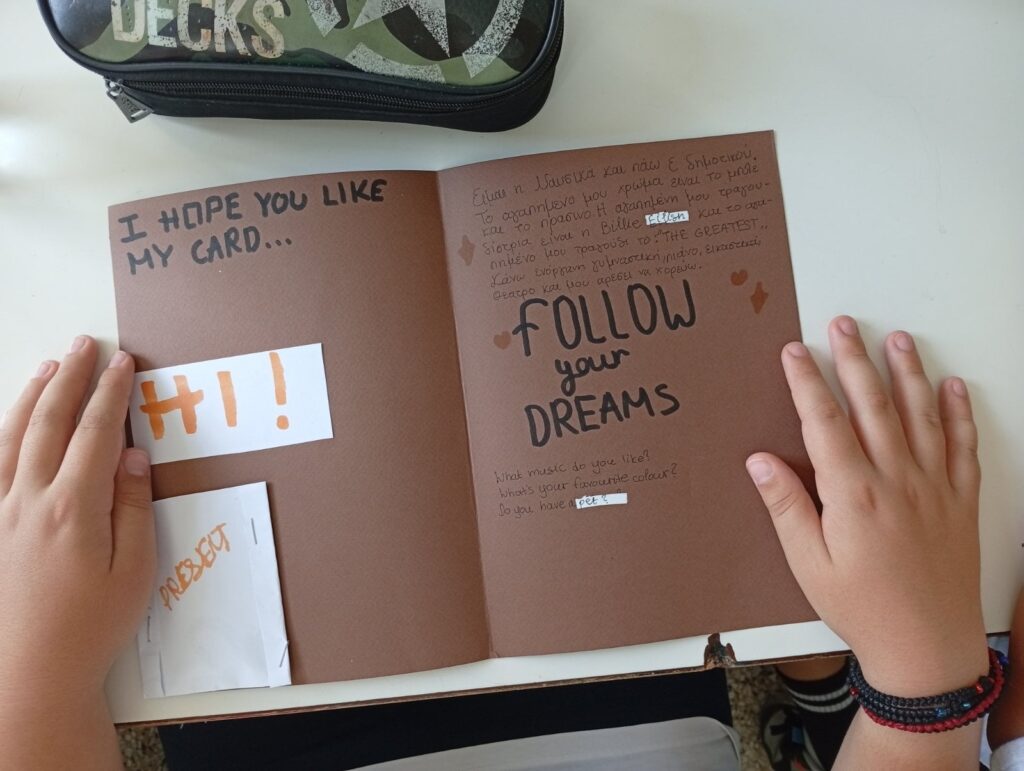 DECKS
I HOPE YOU LIKE
MY CARD...
HI!
PRESENT
Είμαι η Ναυσικά και πάω Ε δημοτικού.
Το αγαπημένο μου χρώμα είναι το μπλε
και το πράσινο. Η αγαπημένη μου τραγου-
δίστρια είναι η Billie Eilish και το αγα-
πημένο μου τραγούδι το: "THE GREATEST".
Κάνω ενόργανη γυμναστική, πιάνο, εικαστικά,
θέατρο και μου αρέσει να χορεύω.
FOLLOW
your
DREAMS
What music do you like?
What's your favourite colour?
Do you have a pet?